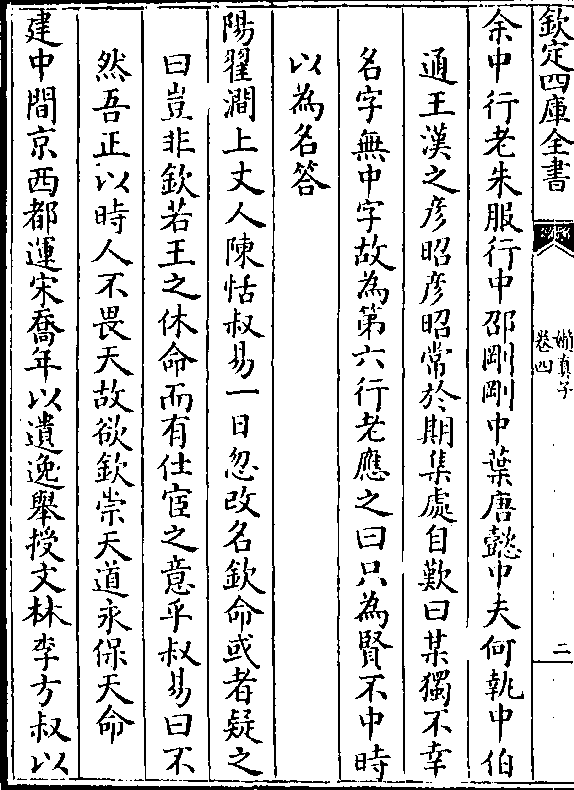 欽定四庫全書
嬾真子
卷四
二
余中行老朱服行中邵剛剛中葉唐懿中夫何執中伯
通王漢之彦昭彦昭常於期集處自歎曰某獨不幸
名字無中字故為第六行老應之曰只為賢不中時
以為名答
陽翟澗上丈人陳恬叔易一日忽改名欽命或者疑之
曰豈非欽若王之休命而有仕宦之意乎叔易曰不
然吾正以時人不畏天故欲欽崇天道永保天命
建中間京西都運宋喬年以遺逸舉授文林李方叔以